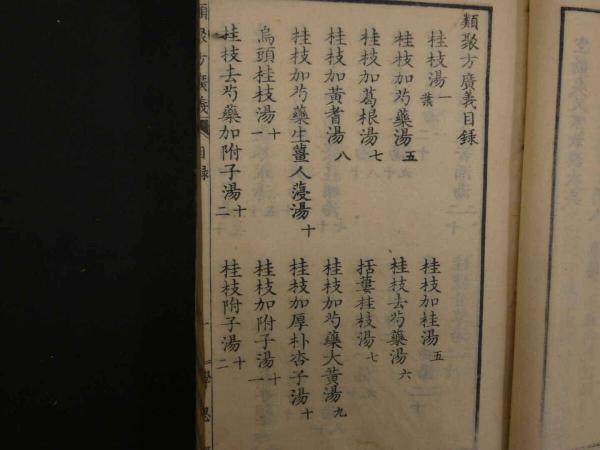 類聚方廣義目録
桂枝湯 一葉
桂枝加桂湯 五
桂枝加芍藥湯 五
桂枝去芍藥湯 六
桂枝加葛根湯 七
括蔞桂枝湯 七
桂枝加黃耆湯 八
桂枝加芍藥大黃湯 九
桂枝加芍藥生薑人薓湯 十
桂枝加厚朴杏子湯 十
烏頭桂枝湯 十一
桂枝加附子湯 十一
桂枝去芍藥加附子湯 十二
桂枝附子湯 十二
類聚方廣義
目録
一